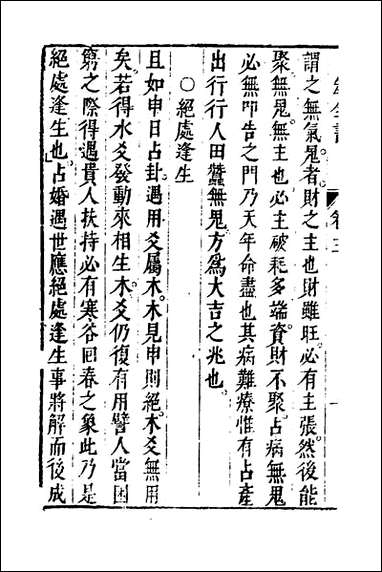 謂之無氣鬼者財之主也財雖旺必有主張然後能
聚無鬼無主也必主破耗多端資財不聚占病無鬼
必無叩告之門乃天年命盡也其病難療惟有占產
出行行人田蠶無鬼方爲大吉之兆也
○絕處逢生
且如申日占卦遇用爻屬木木見申則絕木爻無用
矣若得水爻發動來相生木爻仍復有用譬人當困
窮之際得遇貴人扶持必有寒谷回春之象此乃是
絕處逢生也占婚遇世應絕處逢生事將解而後成